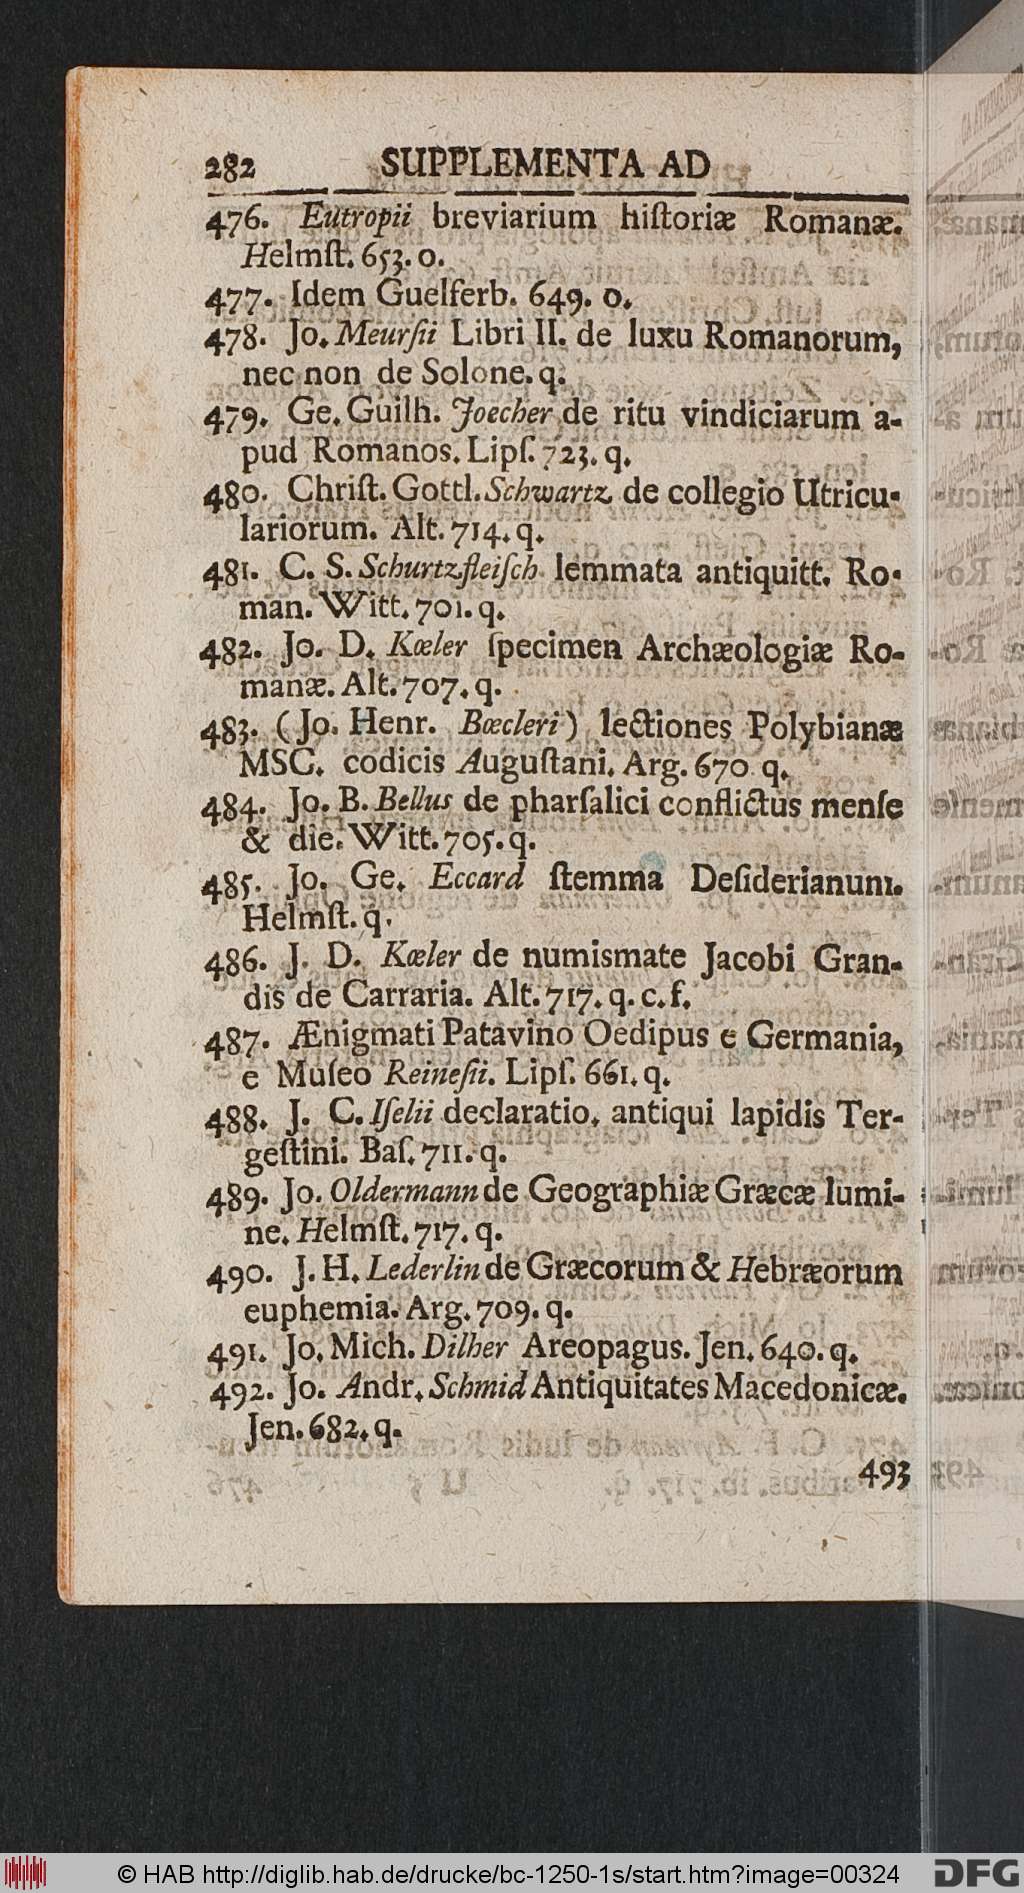 282 SUPPLEMENTA AD
476. Eutropii breviarium hiſtoriæ Romanæ.
Helmſt. 653. o.
477. Idem Guelferb. 649. o.
478. Jo. Meurſii Libri II. de luxu Romanorum,
nec non de Solone. q.
479. Ge. Guilh. Joecher de ritu vindiciarum a-
pud Romanos. Lipſ. 723. q.
480. Chriſt. Gottl. Schwartz de collegio Utricu-
lariorum. Alt. 714. q.
481. C. S. Schurtzfleiſch lemmata antiquitt. Ro-
man. Witt. 701. q.
482. Jo. D. Kœler ſpecimen Archæologiæ Ro-
manæ. Alt. 707. q.
483. (Jo. Henr. Bœcleri) lectiones Polybianæ
MSC. codicis Auguſtani. Arg. 670 q.
484. Jo. B. Bellus de pharſalici conflictus menſe
& die. Witt. 705. q.
485. Jo. Ge. Eccard ſtemma Deſiderianum.
Helmſt. q.
486. J. D. Kœler de numismate Jacobi Gran-
dis de Carraria. Alt. 717. q. c. f.
487. Ænigmati Patavino Oedipus e Germania,
e Muſeo Reineſii. Lipſ. 661. q.
488. J. C. Iſelii declaratio. antiqui lapidis Ter-
geſtini. Baſ. 711. q.
489. Jo. Oldermann de Geographiæ Græcæ lumi-
ne. Helmſt. 717. q.
490. J. H. Lederlin de Græcorum & Hebræorum
euphemia. Arg. 709. q.
491. Jo. Mich. Dilher Areopagus. Jen. 640. q.
492. Jo. Andr. Schmid Antiquitates Macedonicæ.
Jen. 682. q.
493
© HAB http://diglib.hab.de/drucke/bc-1250-1s/start.htm?image=00324
DFG